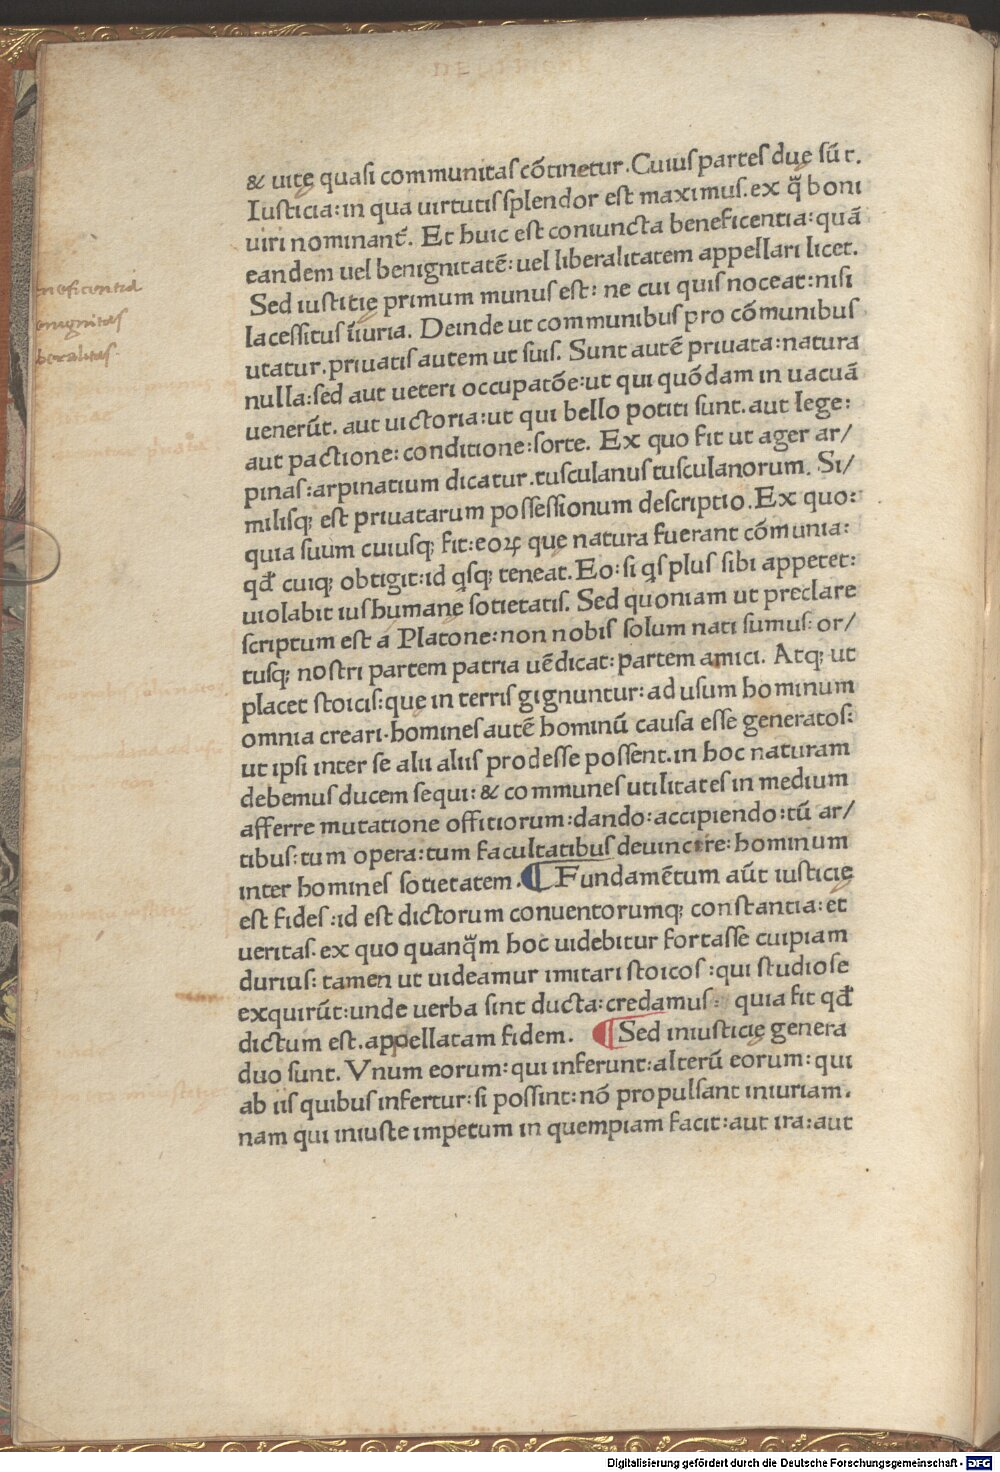 & uitę quasi communitas cōtinetur. Cuius partes duę sūt.
Iusticia: in qua uirtutis splendor est maximus. ex q̄ boni
uiri nominant᷑. Et huic est coniuncta beneficentia: quā
eandem uel benignitatē: uel liberalitatem appellari licet.
Sed iustitię primum munus est: ne cui quis noceat: nisi
lacessitus īiuria. Deinde ut communibus pro cōmunibus
utatur. priuatis autem ut suis. Sunt autē priuata: natura
nulla: sed aut ueteri occupatōe: ut qui quōdam in uacuā
uenerūt. aut uictoria: ut qui bello potiti sunt. aut lege:
aut pactione: conditione: sorte. Ex quo fit ut ager ar/
pinas: arpinatium dicatur. tusculanus tusculanorum. Si/
milisq; est priuatarum possessionum descriptio. Ex quo:
quia suum cuiusq; fit: eoꝝ quę natura fuerant cōmunia:
qđ cuiq; obtigit: id qsq; teneat. Eo: si qs plus sibi appetet:
uiolabit ius humanę sotietatis. Sed quoniam ut preclare
scriptum est a Platone: non nobis solum nati sumus: or/
tusq; nostri partem patria uēdicat: partem amici. Atq; ut
placet stoicis: quę in terris gignuntur: ad usum hominum
omnia creari. homines autē hominū causa esse generatos:
ut ipsi inter se alii aliis prodesse possent. in hoc naturam
debemus ducem sequi: & communes utilitates in medium
afferre mutatione offitiorum: dando: accipiendo: tū ar/
tibus: tum opera: tum facultatibus deuincire: hominum
inter homines sotietatem. ¶ Fundamētum aūt iusticię
est fides: id est dictorum conuentorumq; constantia: et
ueritas. ex quo quanq̄m hoc uidebitur fortasse cuipiam
durius: tamen ut uideamur imitari stoicos: qui studiose
exquirūt: unde uerba sint ducta: credamus: quia fit qđ
dictum est. appellatam fidem. ¶ Sed iniusticię genera
duo sunt. Vnum eorum: qui inferunt: alterū eorum: qui
ab iis quibus infertur: si possint: nō propulsant iniuriam.
nam qui iniuste impetum in quempiam facit: aut ira: aut
neficentia
enignitas
beralitas
Digitalisierung gefördert durch die Deutsche Forschungsgemeinschaft - DFG